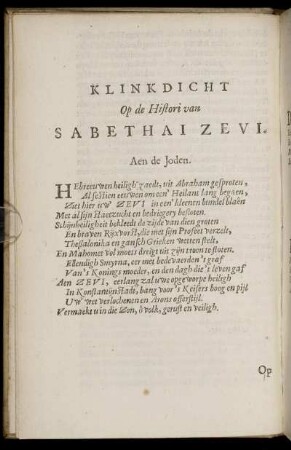 KLINKDICHT
Op de Histori van
SABETHAI ZEVI.
Aen de Joden.
HEbreeuwen heiligh' zaedt, uit Abraham gesproten,
Al sestien eeuwen om een' Heilant lang begaen,
Ziet hier uw ZEVI in een' kleenen bundel blaên
Met al sijn staetzucht en bedriegery besloten.
Schijnheiligheit bekleedt de zijde van dien groten
En braven Rijxvorst, die met sijn Profeet verzelt,
Thessalonika en gansch Grieken wetten stelt,
En Mahomet vol moets dreigt uit zijn troon te stoten.
Ellendigh Smyrna, eer met bedevaerden 't graf
Van 's Konings moeder, en den dagh die 't leven gaf
Aen ZEVI, eerlang zal uwe opgeworpe heiligh
In Konstantijnstadt, bang voor 's Keisers boog en pijl
Uw wet verlochenen en Arons offerstijl.
Vermaekt u in die Zon, ô volk, gerust en veiligh.
Op